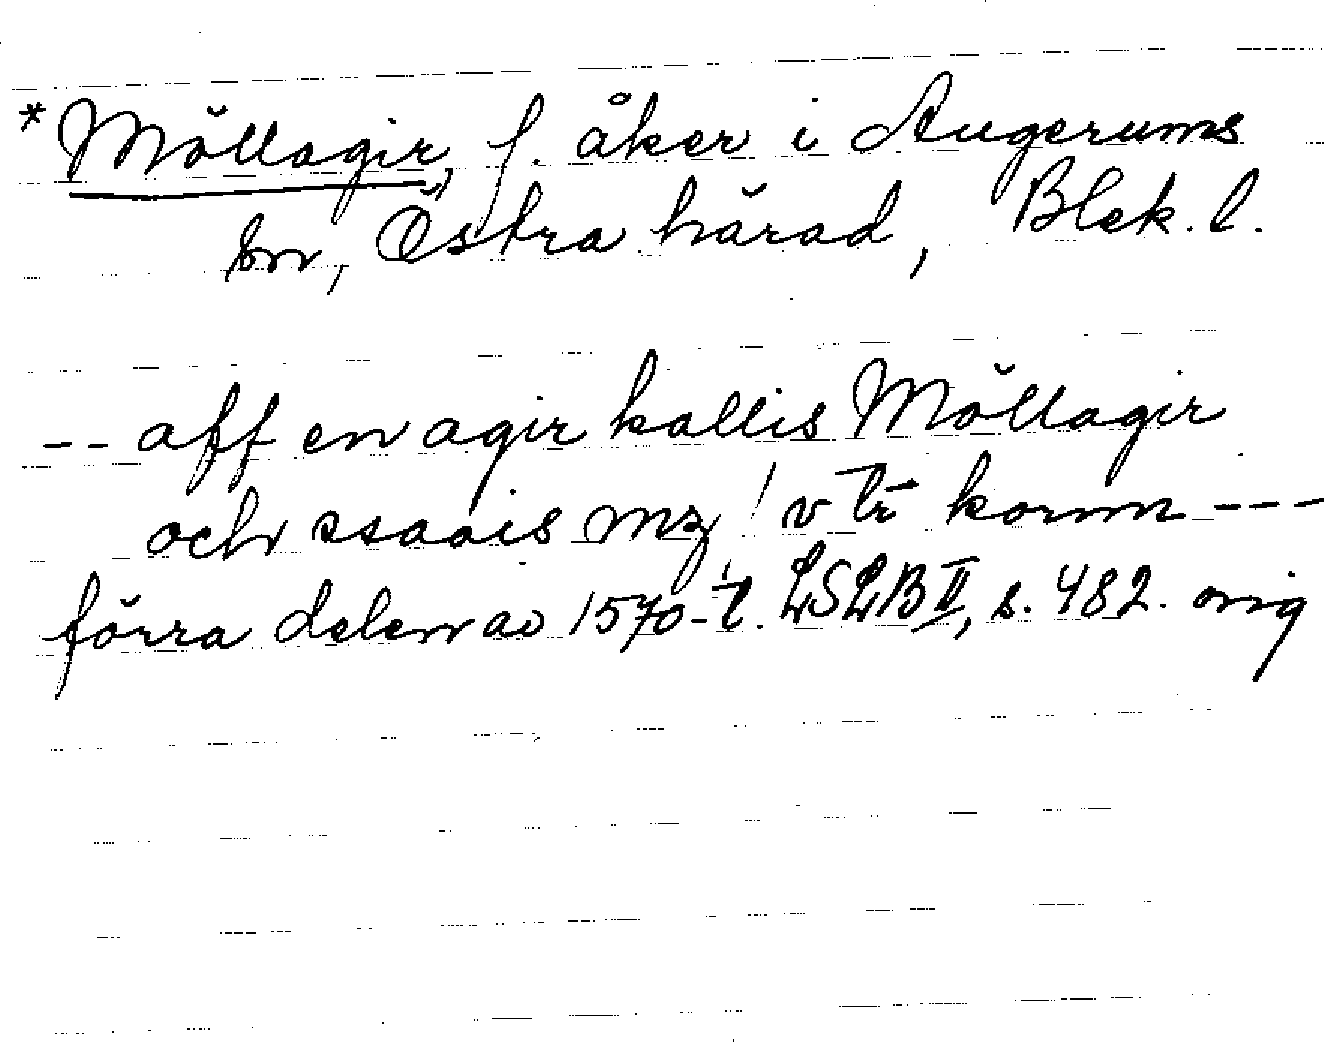 *Möllagir, f. åker i Augerums
sn, Östra härad, Blek. l.
-- aff en agir kallis Möllagir
och ssaais mz ! v tr̄ korn ---
förra delen av 1570-t. LSLB II, s. 482. orig